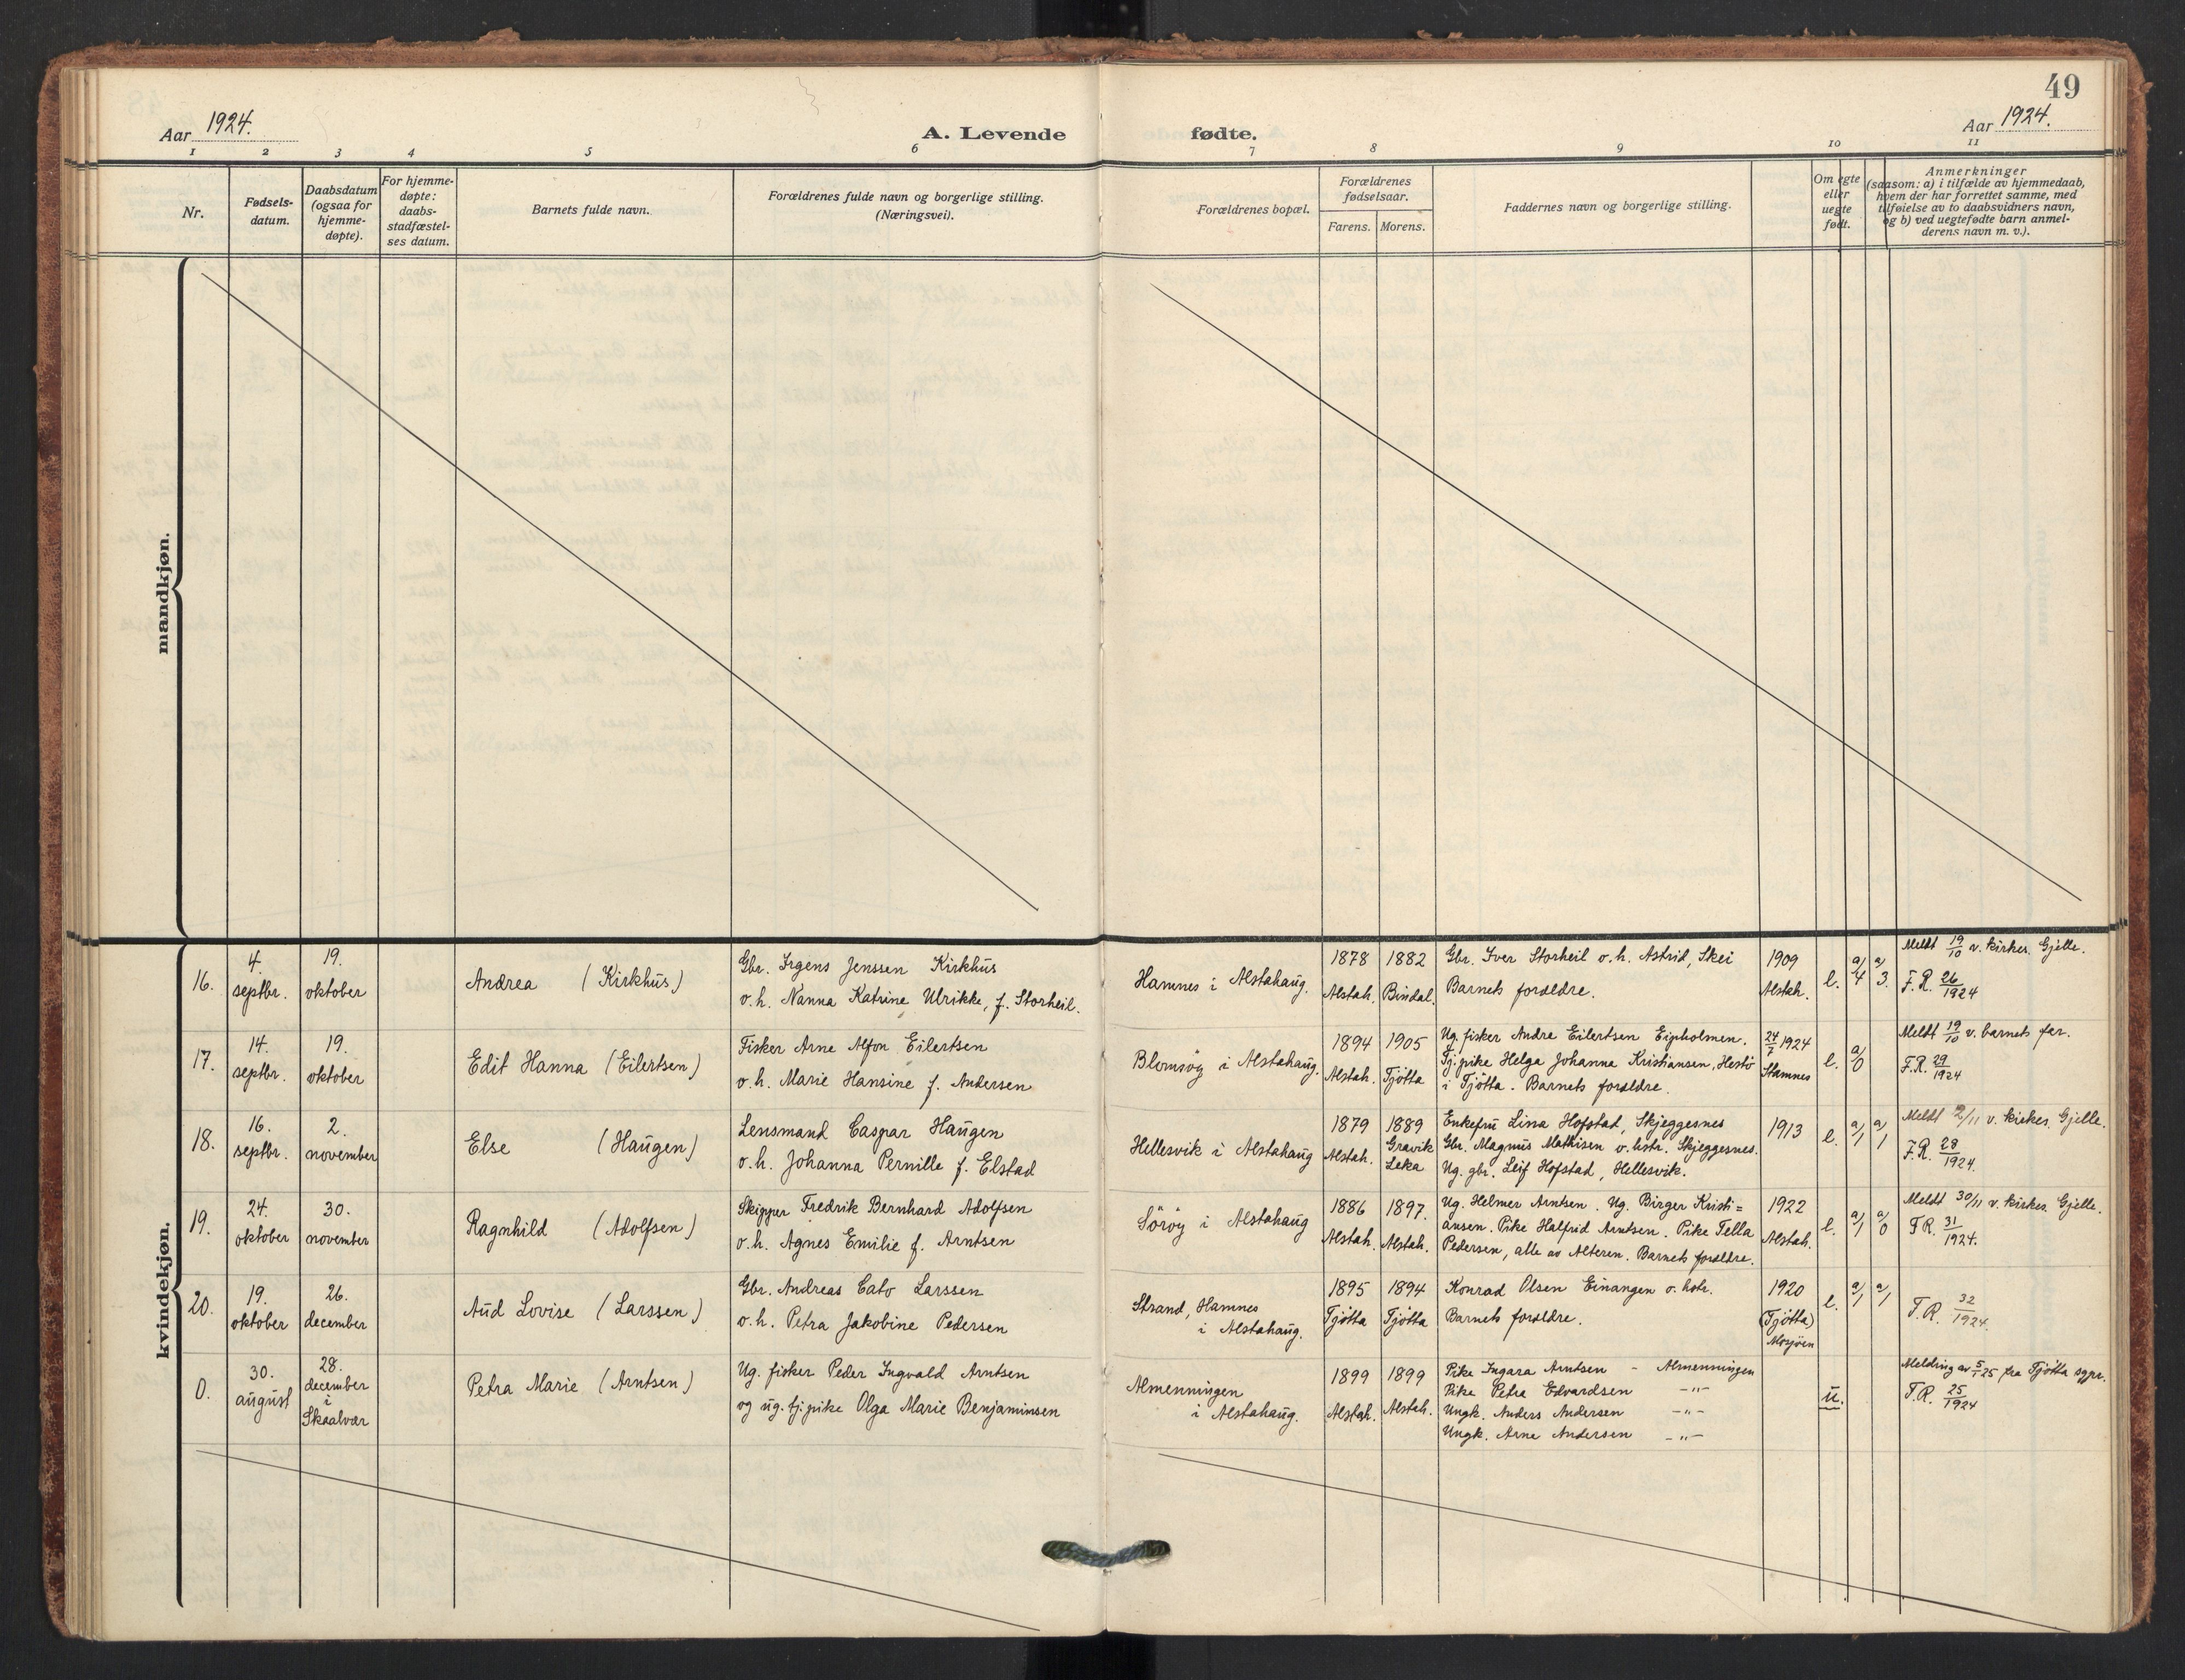 49
Aar 1924.
A. Levende fødte.
Aar 1924.
1 2 3 4 5 6 7 8 9 10 11
Nr.
Fødsels-
datum.
Daabsdatum
(ogsaa for
hjemme-
døpte).
For hjemme-
døpte:
daabs-
stadfæstel-
ses datum.
Barnets fulde navn.
Forældrenes fulde navn og borgerlige stilling.
(Næringsvei).
Forældrenes bopæl.
Forældrenes
fødselsaar.
Farens. Morens.
Faddernes navn og borgerlige stilling.
Om egte
eller
uegte
født.
Anmerkninger
(saasom: a) i tilfælde av hjemmedaab,
hvem der har forrettet samme, med
tilføielse av to daabsvidners navn,
og b) ved uegtefødte barn anmel-
derens navn m. v.).
mandkjøn.
kvindekjøn.
16.
4.
septbr.
19.
oktober
Andrea (Kirkhus)
Gbr. Irgens Jenssen Kirkhus
o.h. Nanna Katrine Ulrikke, f. Storheil.
Hamnes i Alstahaug.
1878
Alstah.
1882
Bindal.
Gbr. Iver Storheil o.h. Astrid, Skei
Barnets forældre.
1909
Alstah.
l.
a/4
a/3.
Meldt 19/10 v. kirkes. Gjelle.
F.R. 26/1924
17.
14.
septbr.
19.
oktober
Edit Hanna (Eilertsen)
Fisker Arne Alfon Eilertsen
o.h. Marie Hansine f. Andersen
Blomsöy i Alstahaug.
1894
Alstah.
1905
Tjötta
Ug. fisker Andre Eilertsen Eipholmen.
Tj.pike Helga Johanna Kristiansen, Hestö
i Tjötta. Barnets forældre.
24/7 1924
Stamnes
l.
a/0
Meldt 19/10 v. barnets far.
F.R. 29/1924
18.
16.
septbr.
2.
november
Else (Haugen)
Lensmand Caspar Haugen
o.h. Johanna Pernille f. Elstad
Hellesvik i Alstahaug
1879
Alstah.
1889
Gravik
Leka
Enkefru Lina Hofstad, Skjeggesnes
Gbr. Magnus Mathisen o. hstr. Skjeggesnes.
Ug. gbr. Leif Hofstad, Hellesvik.
1913
l.
a/1
a/1
Meldt 2/11 v. kirkes. Gjelle.
F.R. 28/1924.
19.
24.
oktober
30.
november
Ragnhild (Adolfsen)
Skipper Fredrik Bernhard Adolfsen
o.h. Agnes Emilie f. Arntsen
Söröy i Alstahaug
1886
Alstah.
1897.
Alstah.
Ug. Helmer Arntsen. Ug. Birger Kristi=
ansen. Pike Halfrid Arntsen. Pike Tella
Pedersen, alle av Alteren. Barnets forældre.
1922
Alstah.
l.
a/1
a/0
Meldt 30/11 v. kirkes. Gjelle.
F.R. 31/1924.
20.
19.
oktober
26.
december
Aud Lovise (Larssen)
Gbr. Andreas Cato Larssen
o.h. Petra Jakobine Pedersen
Strand, Hamnes
i Alstahaug.
1895
Tjötta
1894
Tjötta
Konrad Olsen Einangen o. hstr.
Barnets forældre.
1920
(Tjötta)
Mosjöen
l.
a/1
a/1
F.R. 32/1924.
0.
30.
august
28.
december
i
Skaalvær
Petra Marie (Arntsen)
Ug. fisker Peder Ingvald Arntsen
og ug. tj.pike Olga Marie Benjaminsen
Almenningen
i Alstahaug.
1899
Alstah.
1899
Alstah.
Pike Ingara Arntsen - Almenningen
Pike Petra Edvardsen -"-
Ungk. Anders Andersen -"-
Ungk. Arne Andersen -"-
u.
Melding av 5/1 25 fra Tjötta sgpr.
F.R. 25/1924